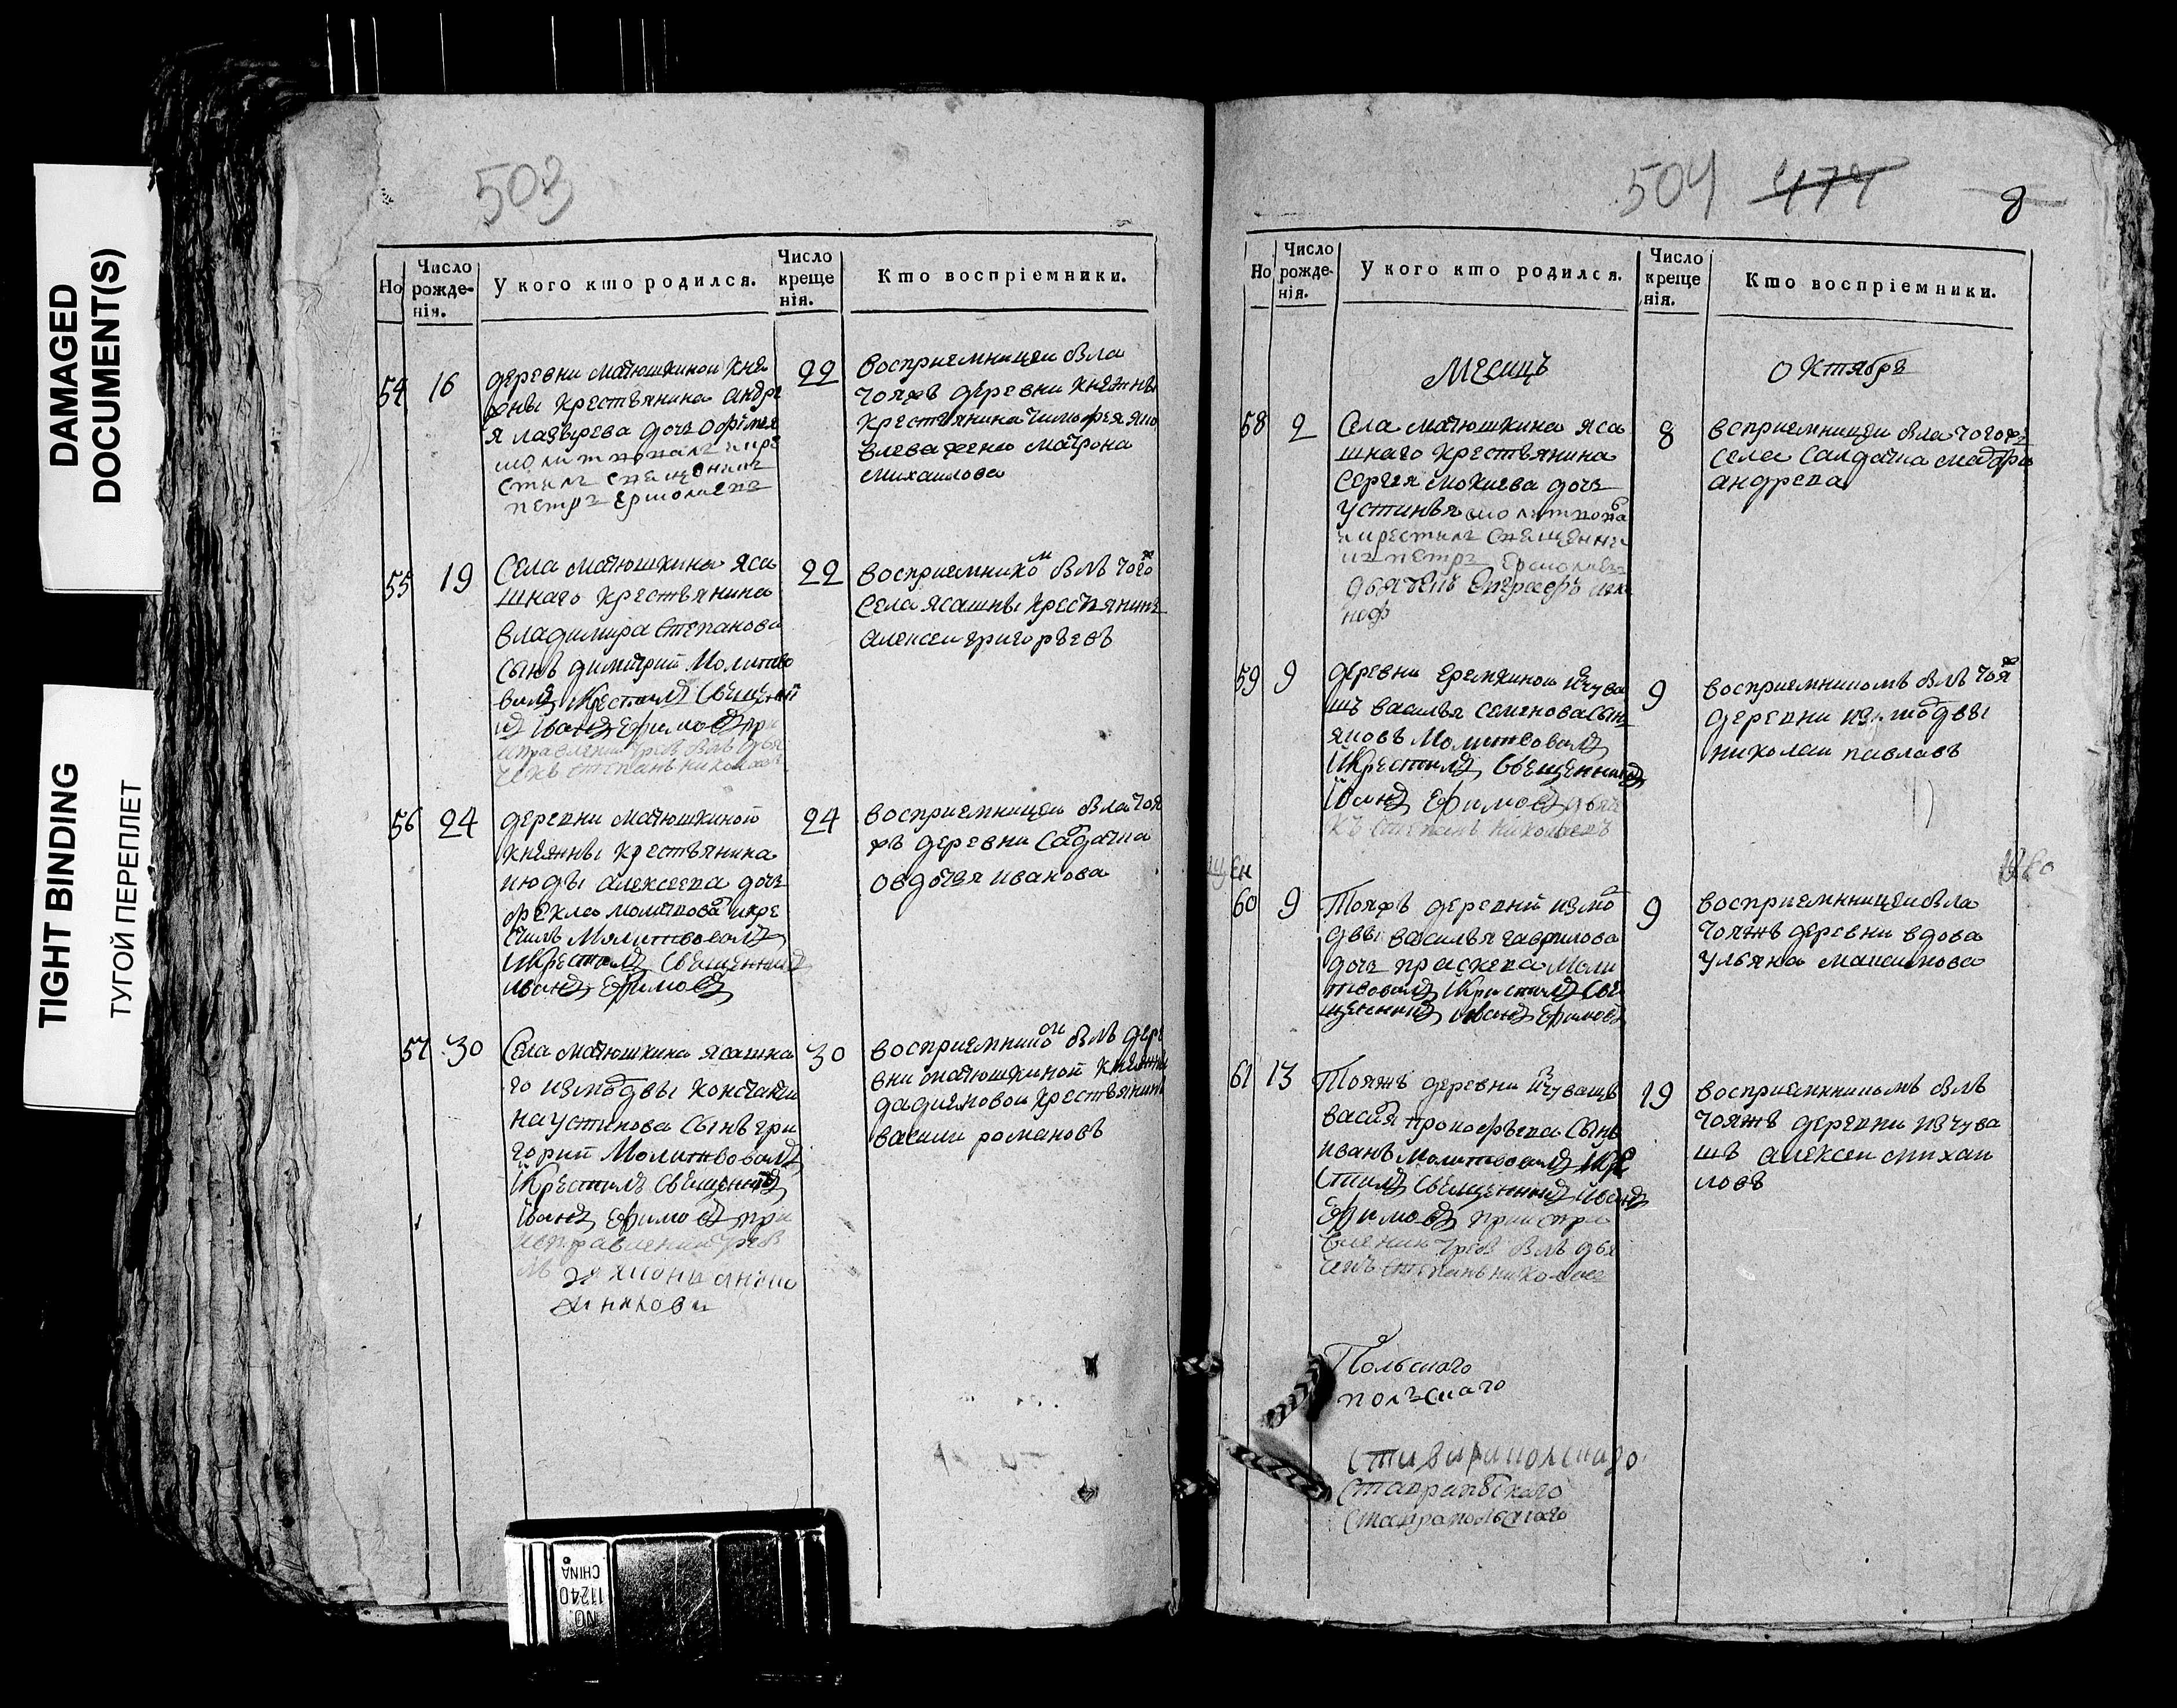 DAMAGED
DOCUMENT(S)
TIGHT BINDING
ТУГОЙ ПЕРЕПЛЕТ
503
Но
Число рожде- нія.
У кого кто родился.
Число креще нія.
Кто воспріемники.
54 16
деревни матюшкиной кня
жны крестьянина андре
я лазырева дочь
молитвовалъ и кре
стилъ священникъ
петръ ермолаевъ
22
восприемницеи была
тояжъ деревни княжны
крестьянина тимофея яко
влева жена матрона
михаилова
55 19
Села матюшкина яса
шнаго крестьянина
владимира степанова
сынъ димитрий Молитво
валъ и крестилъ священни
къ Іванъ Ефимовъ при
исправлении требъ былъ дья
чекъ степанъ николаевъ
22
восприемникомъ былъ тогожъ
Села ясашны крестьянинъ
алексеи григорьевъ
56 24
деревни матюшкиной
княжны крестьянина
алексеева дочь
фекла молитвовалъ и кре
стилъ Молитвовалъ
И крестилъ священникъ
иванъ Ефимовъ
24
восприемницеи была тоя
жъ деревни салдатка
овдотья иванова
57 30
Села матюшкина ясашна
го измордвы константи
на устинова сынъ гри
горий Молитвовалъ
И крестилъ священникъ
Іванъ Ефимовъ при
исправлении требъ
30
восприемникомъ былъ дере
вни матюшкиной княжны
крестьянинъ
василеи романовъ
504 474 8
Но
Число рожде- нія.
У кого кто родился.
Число креще нія.
Кто воспріемники.
Месяцъ Октябрь
58 2
Села матюшкина яса
шнаго крестьянина
Сергея мокиева дочь
устинья молитвова
и крестилъ священни
къ петръ ермолаевъ
8
восприемницеи была тогожъ
села салдатка
андреева
59 9
деревни еремкинои изчува
шъ василья семенова сынъ
яковъ Молитвовалъ
И крестилъ священникъ
Іванъ Ефимовъ дьяч
къ степанъ николаевъ
9
восприемникомъ былъ тояжъ
деревни измордвы
николаи павловъ
60 9
Тояжъ деревни измо
рдвы василья гаврилова
дочь праскева моли
твовалъ и крестилъ све
щенникъ иванъ Ефимовъ
9
восприемницеи была
тояжъ деревни вдова
ульяна максимова
61 13
Тояжъ деревни изчувашъ
василя прокофьева сынъ
иванъ молитвовалъ и кре
стилъ священникъ иванъ
Ефимовъ при испра
влении требъ былъ дья
чекъ степанъ николаев
19
восприемникомъ былъ
тояжъ деревни изчува
шъ алексеи михаи
ловъ
Польскаго
польскаго
Ставрапольскаго
Ставрапольскаго
NO.
11240
CHINA